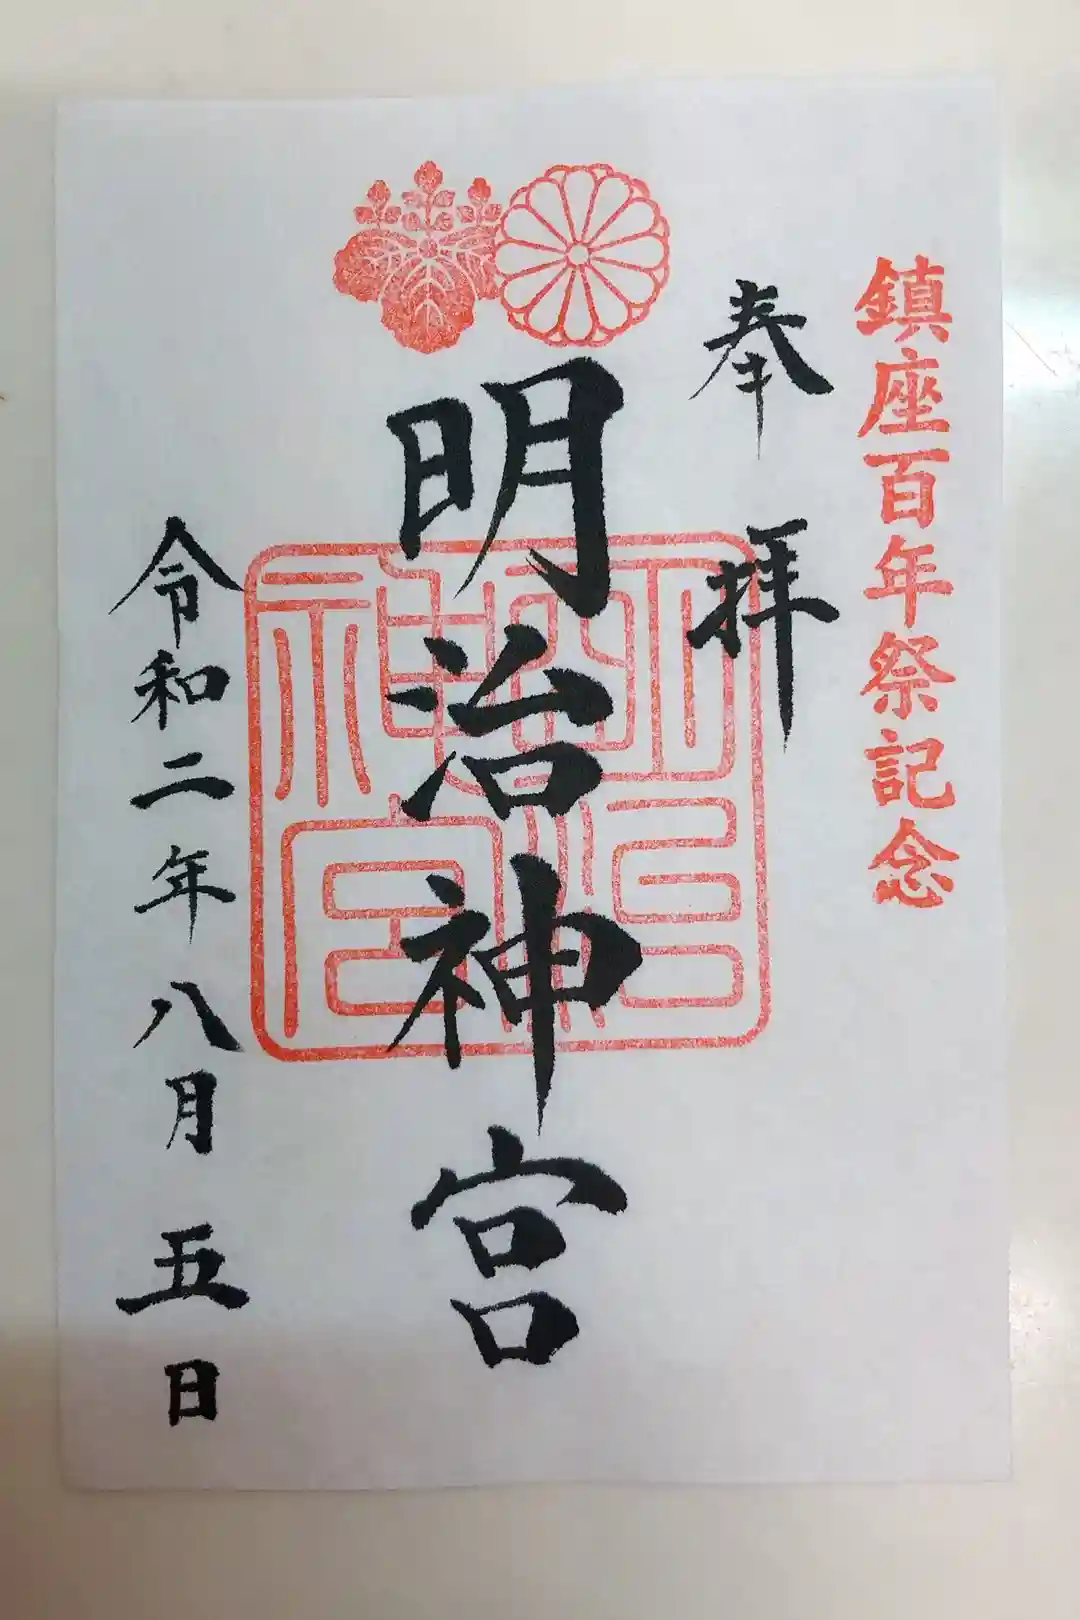 鎮座百年祭記念
奉拝
明治神宮
明治神宮
令和二年八月五日